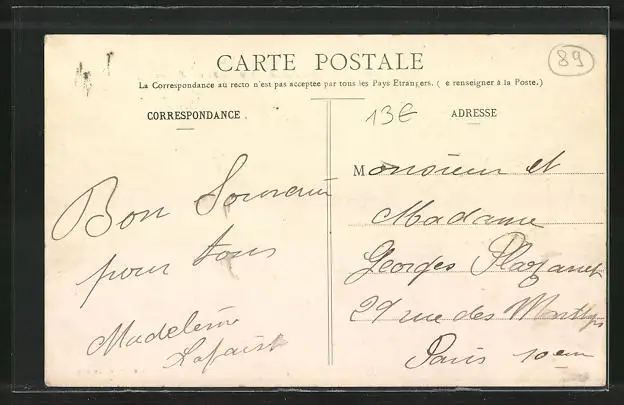 89
CARTE POSTALE
La Correspondance au recto n'est pas acceptée par tous les Pays Etrangers. ( e renseigner à la Poste.)
CORRESPONDANCE.
13€
ADRESSE
Bon Souvenir
pour tous
Madeleine
Monsieur et
Madame
Georges Plazanet
29 rue des
Paris 10em